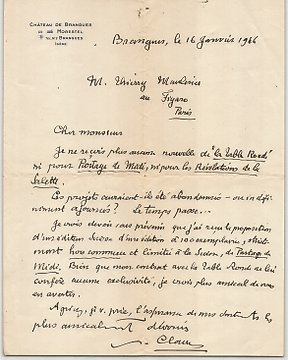 CHÂTEAU DE BRANGUES
MORESTEL
BRANGUES
ISÈRE
Brangues, le 16 Janvier 1946
M. Thierry Maulnier
au Figaro
Paris
Cher monsieur
Je ne reçois plus aucune nouvelle de "la Table Ronde"
ni pour Partage de Midi, ni pour les Révélations de la
Salette.
Ces projets auraient-ils été abandonnés - ou indéfi-
niment ajournés? Le temps passe...
Je crois devoir vous prévenir que j'ai reçu la proposition
d'une édition Suisse à 100 exemplaires, stricte-
ment hors commerce et limitée à la Suisse, de Partage de
Midi. Bien que mon contrat avec la Table Ronde ne lui
confère aucune exclusivité, je crois plus amical de vous
en avertir.
Agréez, je v. prie, l'assurance de mes sentiments les
plus amicalement dévoués
Claudel